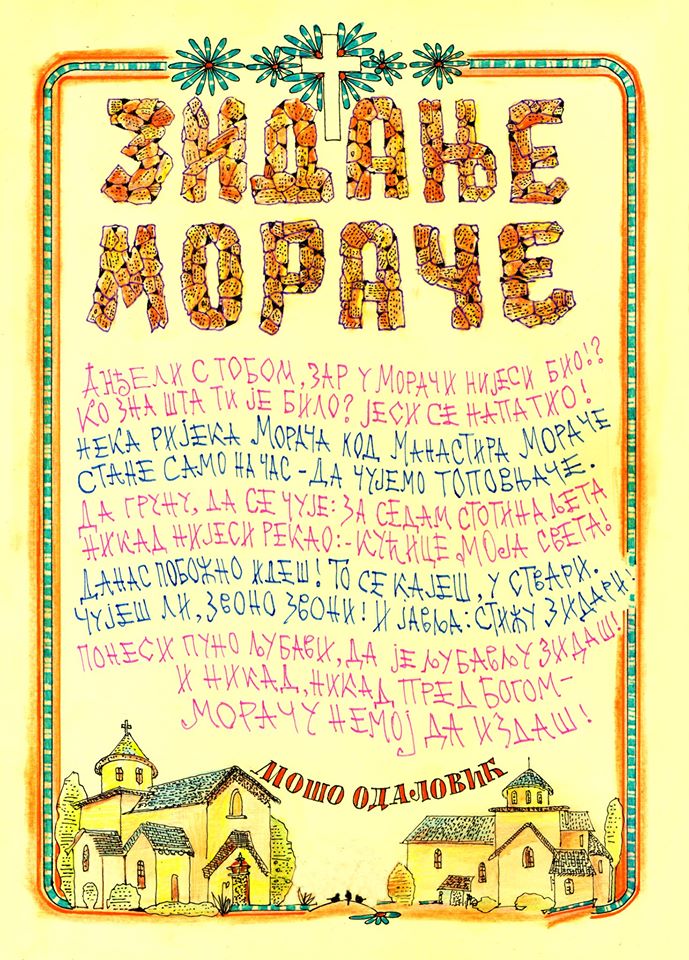 ЗИДАЊЕ
МОРАЧЕ
АНЂЕЛИ С ТОБОМ, ЗАР У МОРАЧИ НИЈЕСИ БИО!?
КО ЗНА ШТА ТИ ЈЕ БИЛО? ЈЕСИ СЕ НАПАТИО!
НЕКА РИЈЕКА МОРАЧА КОД МАНАСТИРА МОРАЧЕ
СТАНЕ САМО НА ЧАС - ДА ЧУЈЕМО ТОПОВЊАЧЕ.
ДА ГРУНУ, ДА СЕ ЧУЈЕ: ЗА СЕДАМ СТОТИНА ЉЕТА
НИКАД НИЈЕСИ РЕКАО: - КУЋИЦЕ МОЈА СВЕТА!
ДАНАС ПОБОЖНО ИДЕШ! ТО СЕ КАЈЕШ, У СТВАРИ.
ЧУЈЕШ ЛИ, ЗВОНО ЗВОНИ! И ЈАВЉА: СТИЖУ ЗИДАРИ!
ПОНЕСИ ПУНО ЉУБАВИ, ДА ЈЕ ЉУБАВЉУ ЗИДАШ!
И НИКАД, НИКАД ПРЕД БОГОМ -
МОРАЧУ НЕМОЈ ДА ИЗДАШ!
МОШО ОДАЛОВИЋ